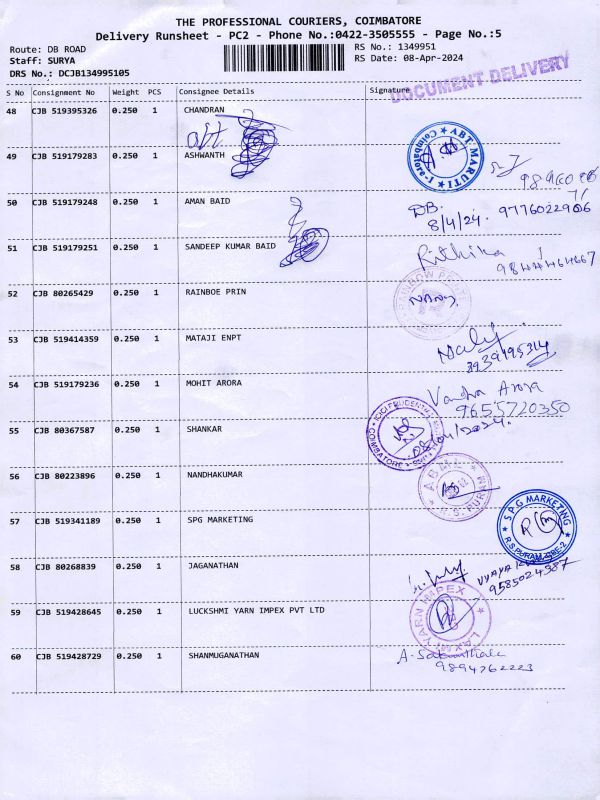 THE PROFESSIONAL COURIERS, COIMBATORE
Delivery Runsheet - PC2 - Phone No.:0422-3505555 - Page No.:5
Route: DB ROAD
RS No.: 1349951
Staff: SURYA
RS Date: 08-Apr-2024
DRS No.: DCJB134995105
DOCUMENT DELIVERY
S No Consignment No Weight PCS Consignee Details Signature
48 CJB 519395326 0.250 1 CHANDRAN
ABT MARUTI
Coimbatore
49 CJB 519179283 0.250 1 ASHWANTH
50 CJB 519179248 0.250 1 AMAN BAID
DB.
8/4/24. 9776022906
51 CJB 519179251 0.250 1 SANDEEP KUMAR BAID
Rithika
9844464667
52 CJB 80265429 0.250 1 RAINBOE PRIN
53 CJB 519414359 0.250 1 MATAJI ENPT
54 CJB 519179236 0.250 1 MOHIT ARORA
Arora
9655720350
55 CJB 80367587 0.250 1 SHANKAR
COIMBATORE
08/04/2024.
56 CJB 80223896 0.250 1 NANDHAKUMAR
57 CJB 519341189 0.250 1 SPG MARKETING
SPG MARKETING
58 CJB 80268839 0.250 1 JAGANATHAN
9585024387
59 CJB 519428645 0.250 1 LUCKSHMI YARN IMPEX PVT LTD
YARN IMPEX
60 CJB 519428729 0.250 1 SHANMUGANATHAN
9894762223